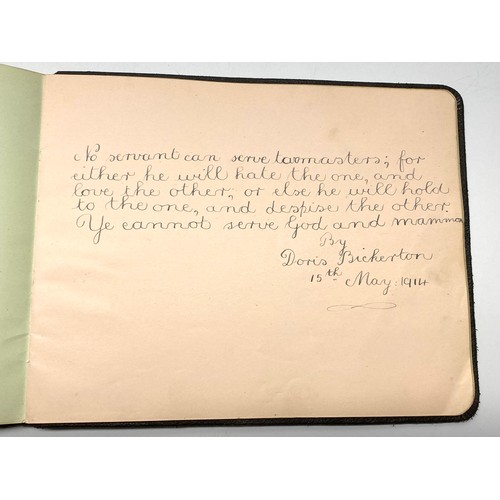 No servant can serve two masters; for
either he will hate the one, and
love the other; or else he will hold
to the one, and despise the other.
Ye cannot serve God and mammon
By
Doris Bickerton
15th May. 1914